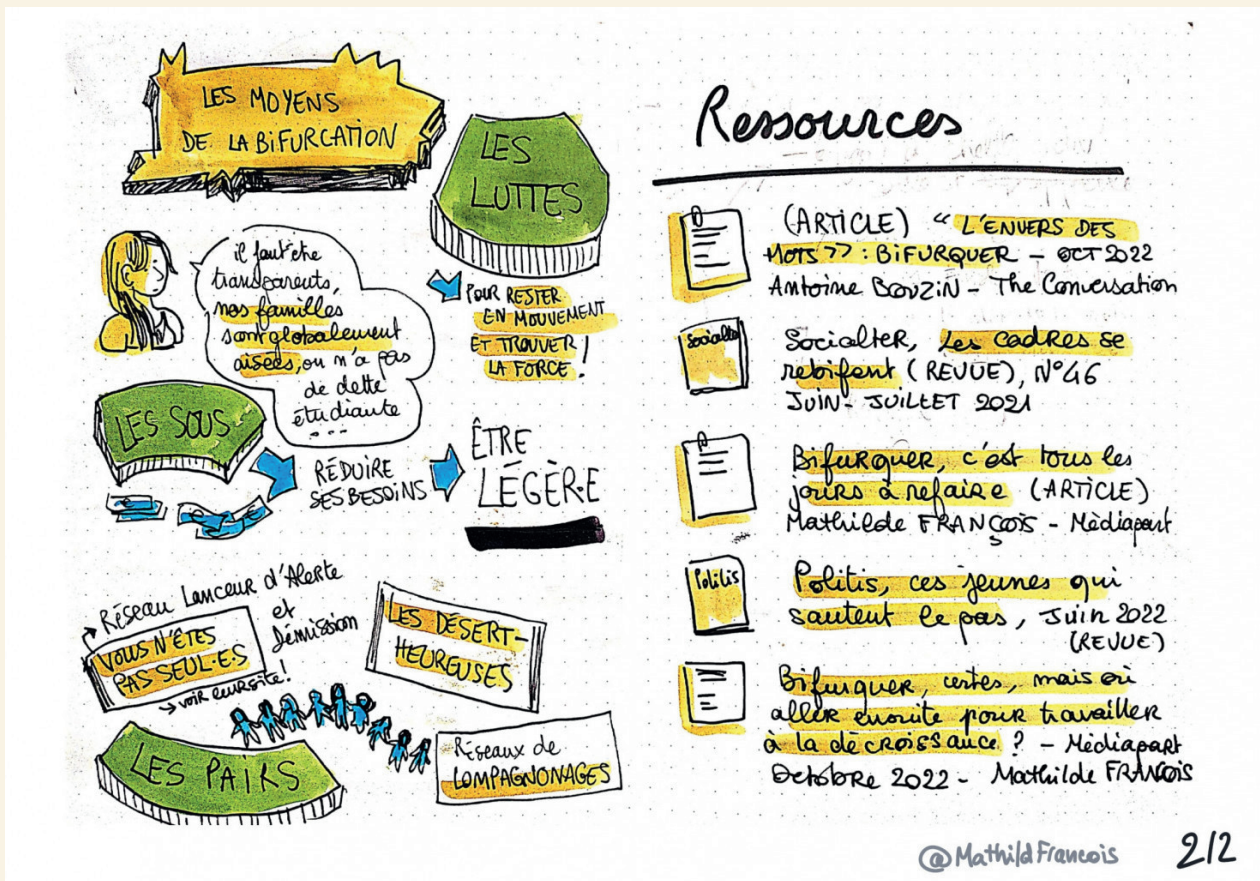 LES MOYENS
DE LA BIFURCATION
LES
LUTTES
POUR RESTER
EN MOUVEMENT
ET TROUVER
LA FORCE !
il faut être
transparents,
nos familles
sont globalement
aisées, on n'a pas
de dette
étudiante
...
LES SOUS
RÉDUIRE
SES BESOINS
ÊTRE
LÉGÈR·E
Réseau Lanceur d'Alerte
et
Démission
VOUS N'ÊTES
PAS SEUL·E·S
voir leur site !
LES DÉSERT-
HEUREUSES
LES PAIRS
Réseaux de
COMPAGNONAGES
Ressources
(ARTICLE) “ L'ENVERS DES
MOTS >> : BIFURQUER – OCT 2022
Antoine BOUZIN – The Conversation
Socialter
Socialter, Les cadres se
rebifent (REVUE), N°46
JUIN - JUILLET 2021
Bifurquer, c'est tous les
jours à refaire (ARTICLE)
Mathilde FRANÇOIS – Médiapart
Politis
Politis, ces jeunes qui
sautent le pas, Juin 2022
(REVUE)
Bifurquer, certes, mais où
aller ensuite pour travailler
à la décroissance ? – Médiapart
Octobre 2022 – Mathilde FRANÇOIS
@MathildFrancois
2/2